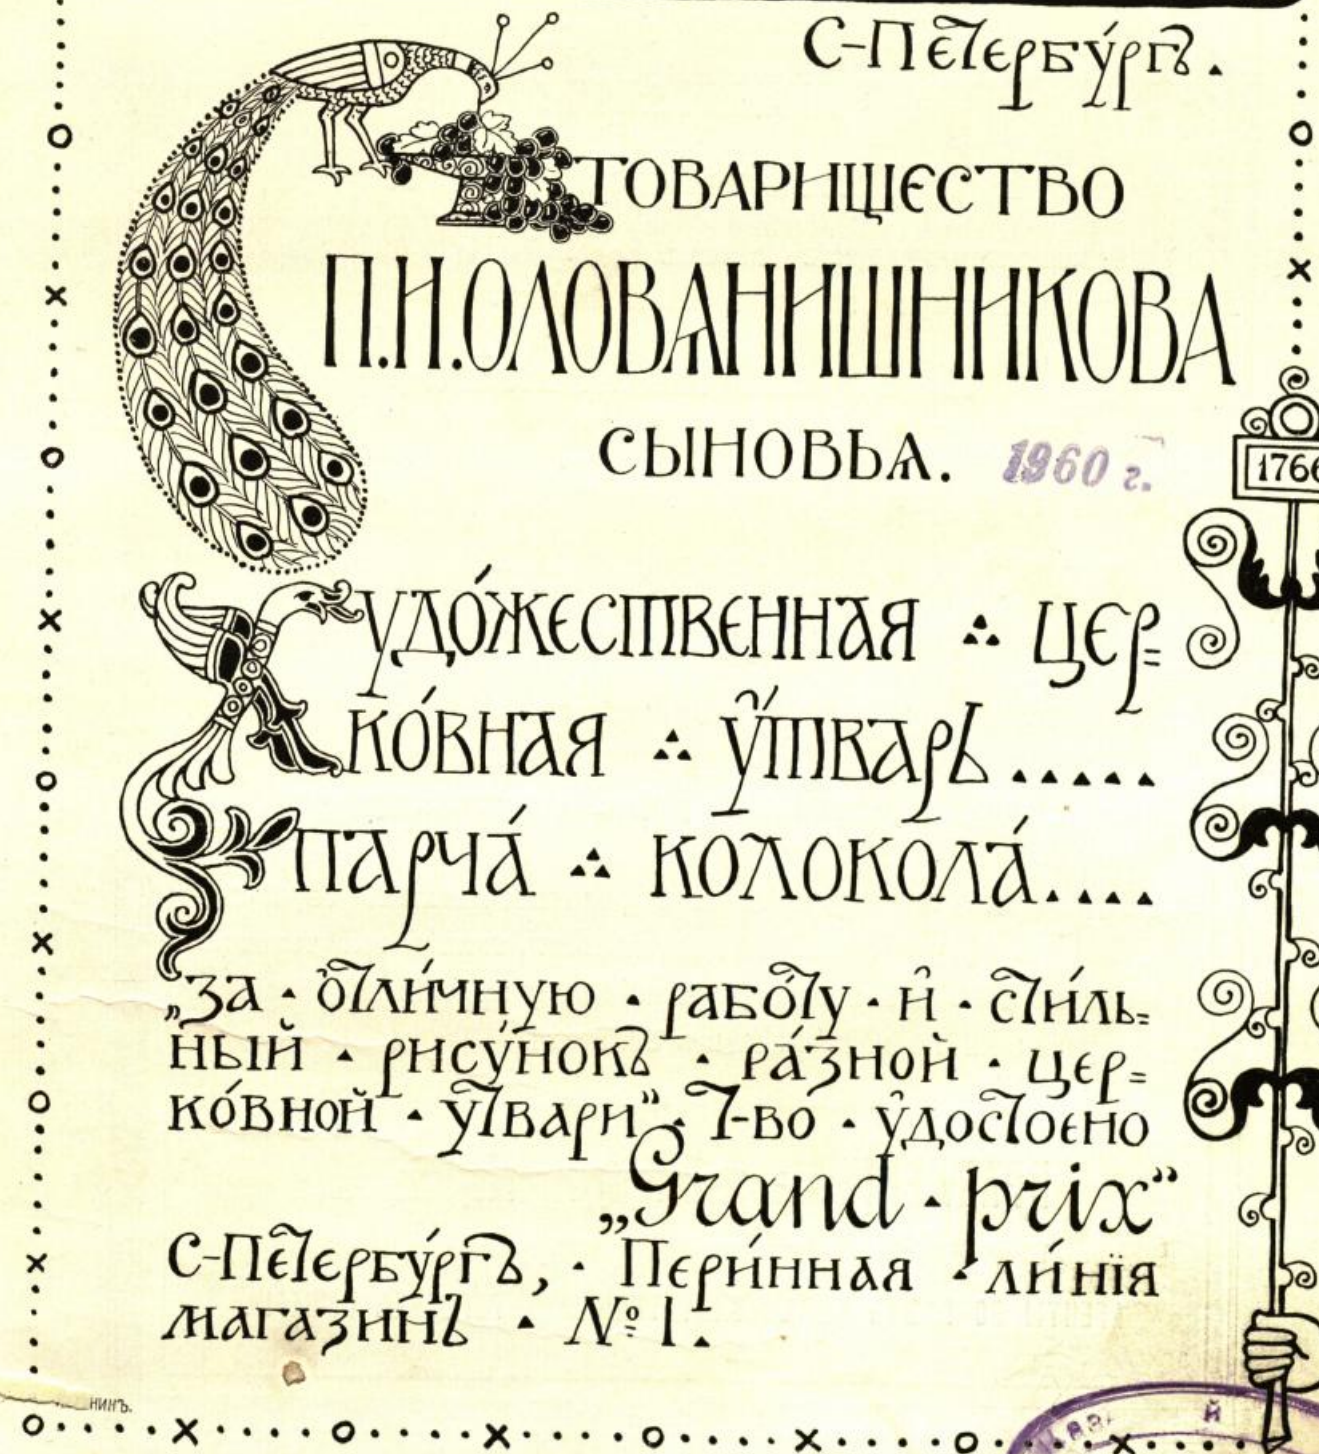 С-Петербу́ргъ.
ТОВАРИЩЕСТВО
П.И.ОЛОВѦНИШНИКОВА
СЫНОВЬѦ.
1960 г.
1766
Худо́жественная ∴ цер=
ко́вная ∴ у҆́тварь.....
парча́ ∴ колокола́....
„за · ѻ҆тли́чную · рабо́ту · и҆ · сти́ль=
ный · рису́нокъ · ра́зной · цер=
ко́вной · у҆твари“. Т-во · у҆достоено
„Grand · prix“
С-Петербу́ргъ, · Пери́нная · ли́нїя
магазинъ · № 1.
нинъ.